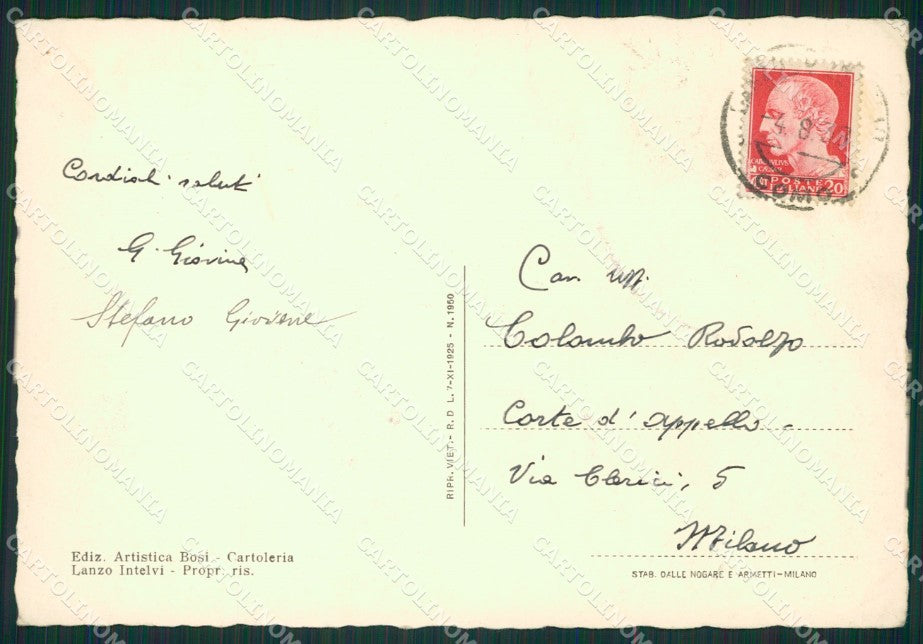 Cordiali saluti
G. Giovine
Stefano Giovene
Ediz. Artistica Bosi - Cartoleria
Lanzo Intelvi - Propr. ris.
RIPR. VIET. - R. D L. 7-XI-1925 - N. 1950
POSTE
ITALIANE 20
COMO
Cav. uff.
Colombo Rodolfo
Corte d'Appello -
Via Clerici, 5
Milano
STAB. DALLE NOGARE E ARMETTI - MILANO
CARTOLINOMANIA